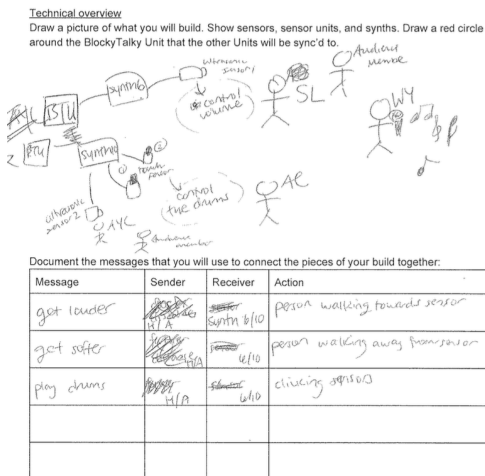 Technical overview
Draw a picture of what you will build. Show sensors, sensor units, and synths. Draw a red circle
around the BlockyTalky Unit that the other Units will be sync'd to.
ultrasonic
sensor 1
Audience
member
synth 6
control
volume
SL
WY
BTU
BTU
synth10
touch
sensor
control
the drums
AC
ultrasonic
sensor 2
AYC
Audience
member
Document the messages that you will use to connect the pieces of your build together:
Message Sender Receiver Action
get louder H/A synth 6/10 person walking towards sensor
get softer H/A 6/10 person walking away from sensor
play drums H/A 6/10 clicking sensor